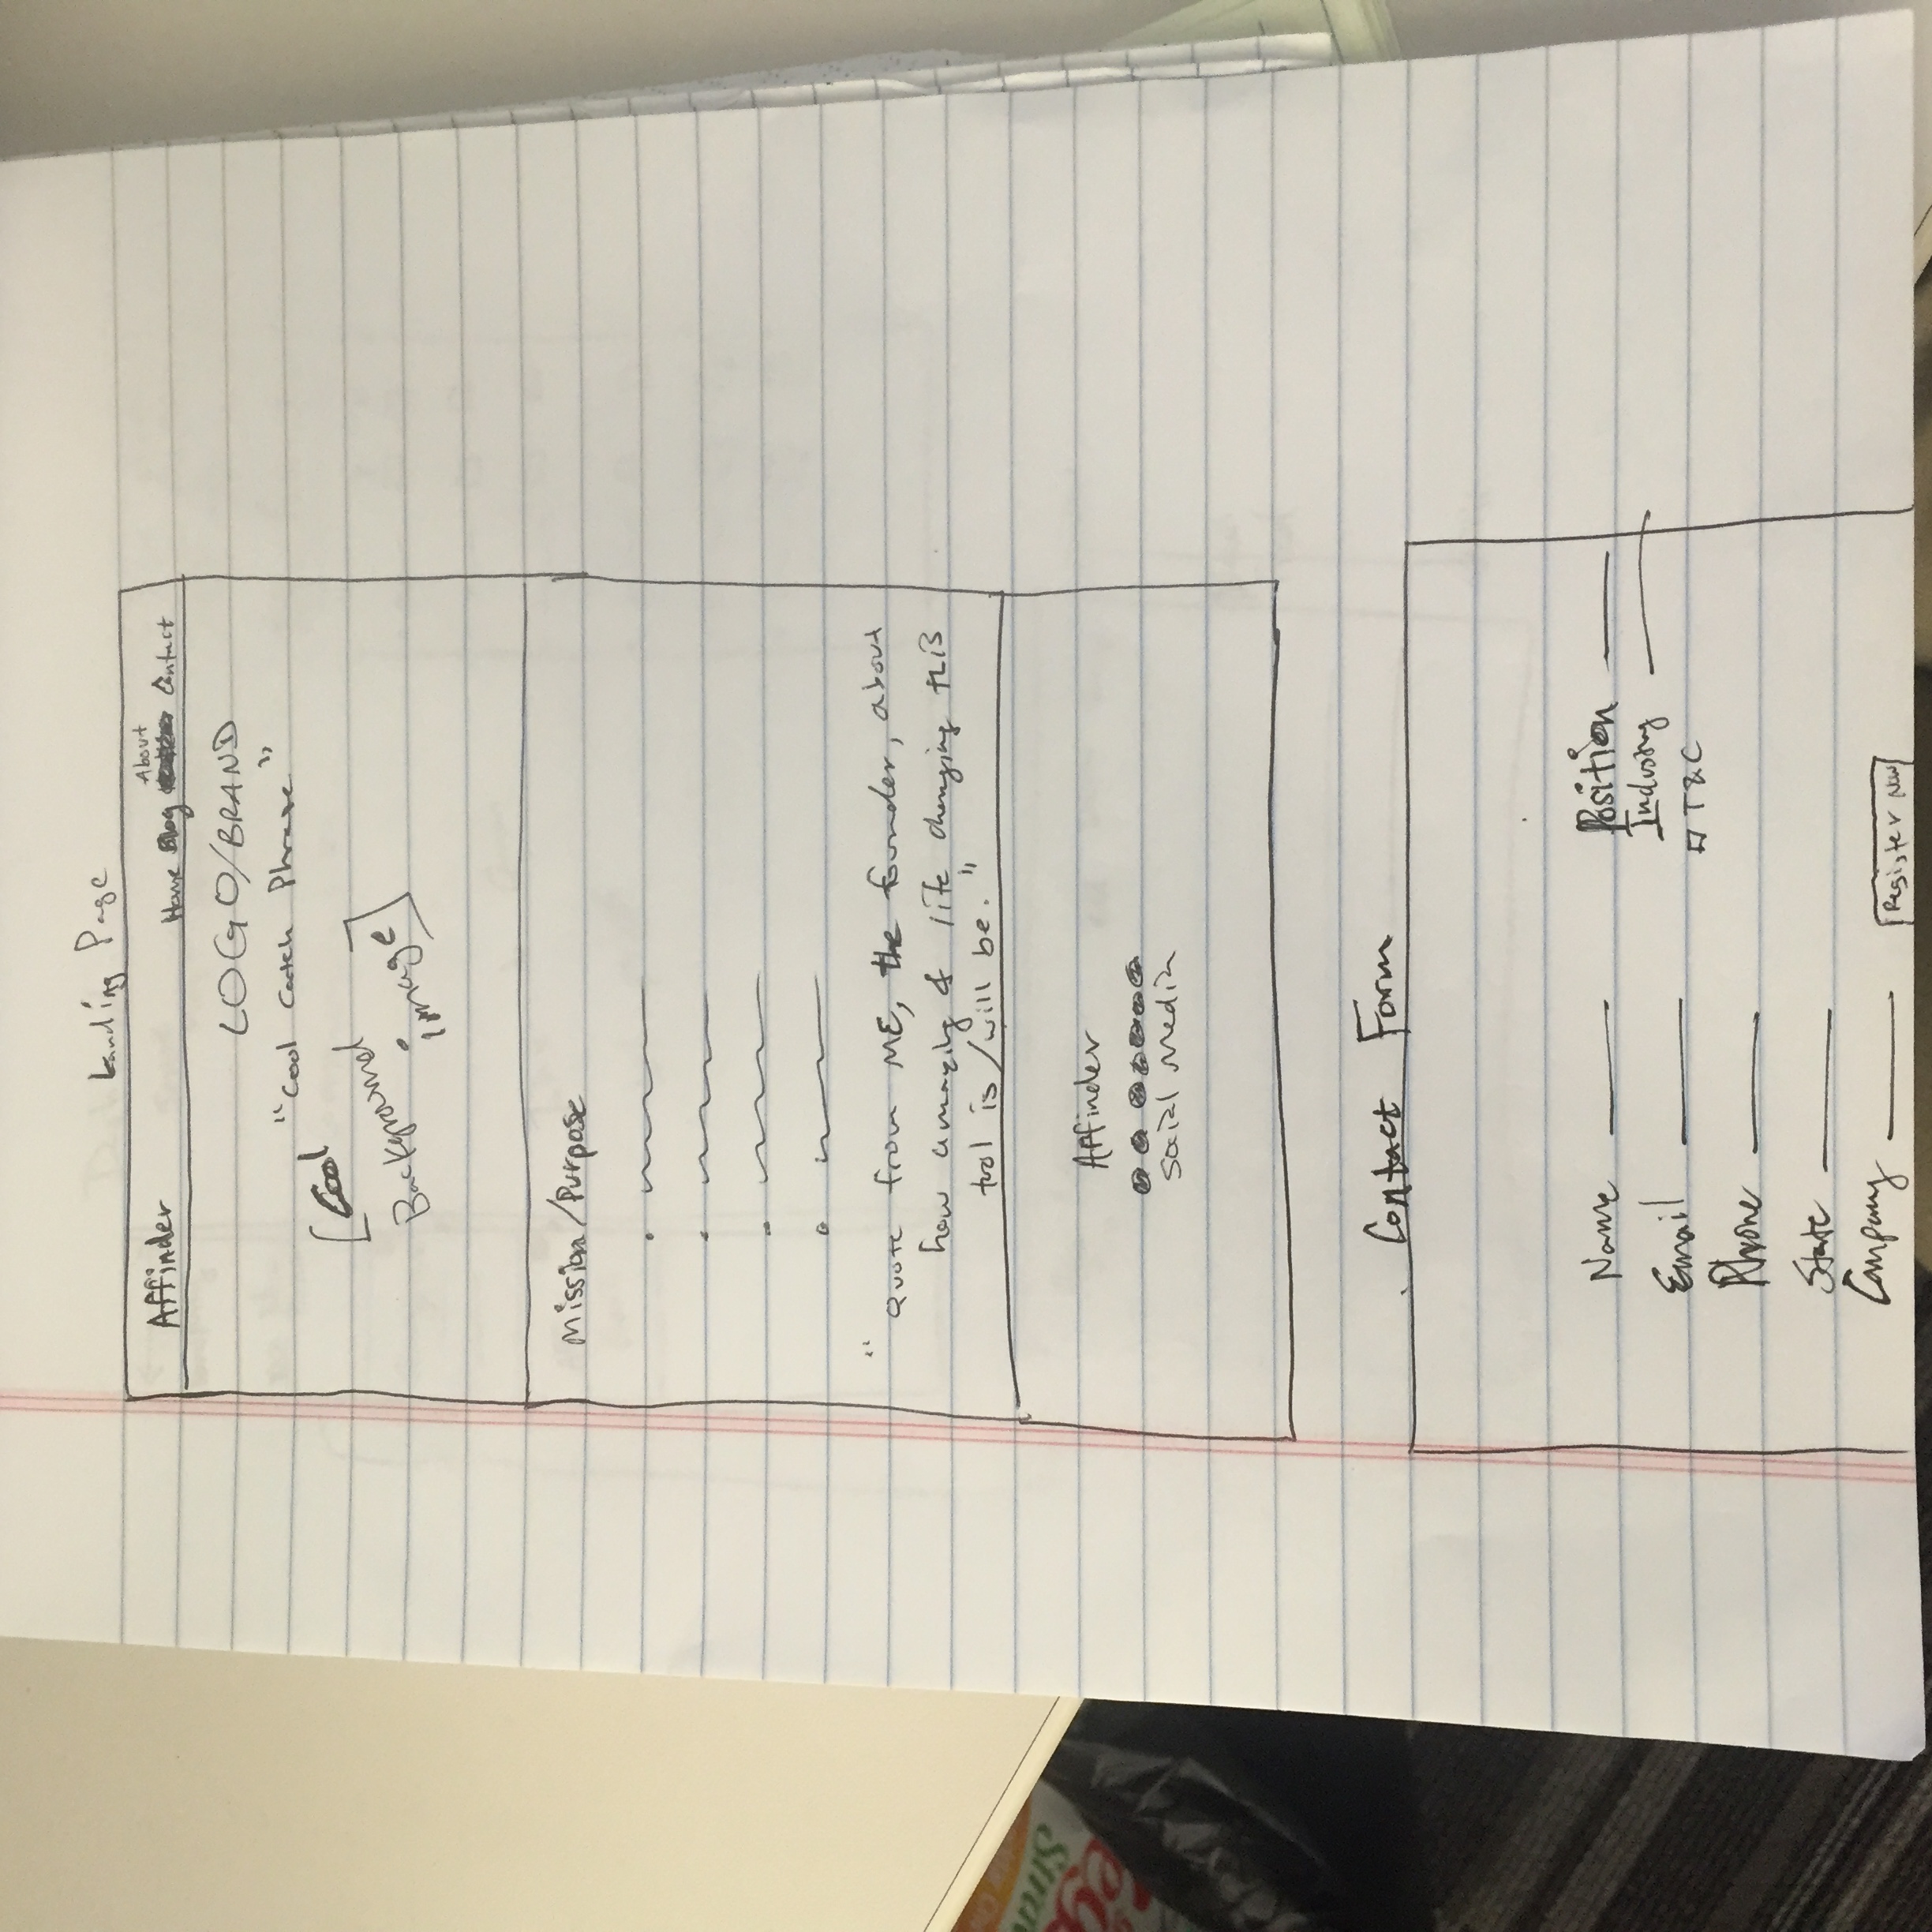 Landing Page
Affinder
About
Home Blog Contact
LOGO/BRAND
"Cool Catch Phrase"
[Cool
Background
image]
Mission/Purpose
"Quote from ME, the founder, about
how amazing & life changing this
tool is/will be."
Affinder
Social Media
Contact Form
Name Position
Industry
Email
T&C
Phone
State
Company
Register Now